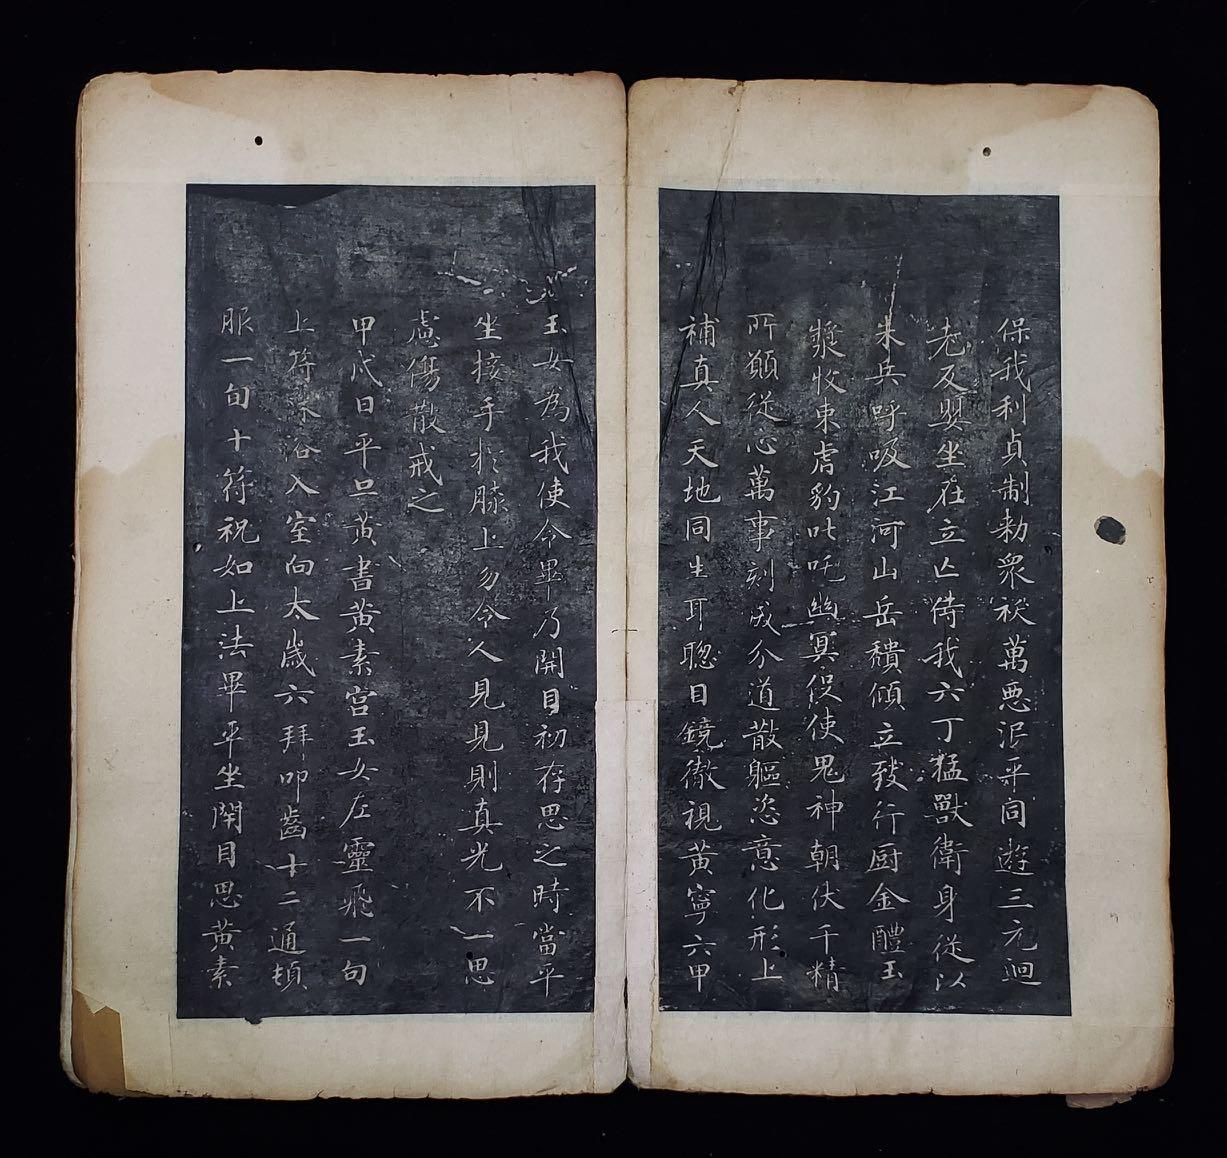 保我利貞制勑眾祅萬惡泯平同遊三元迴
老反嬰坐在立亡侍我六丁猛獸衛身從以
朱兵呼吸江河山岳穨傾立致行厨金醴玉
漿收束虎豹叱吒幽冥役使鬼神朝伏千精
所願從心萬事剋成分道散軀恣意化形上
補真人天地同生耳聰目鏡徹視黃寧六甲
玉女為我使令畢乃開目初存思之時當平
坐接手於膝上勿令人見見則真光不一思
慮傷散戒之
甲戌日平旦黃書黃素宮玉女左靈飛一旬
上符沐浴入室向太歲六拜叩齒十二通頓
服一旬十符祝如上法畢平坐閇目思黃素